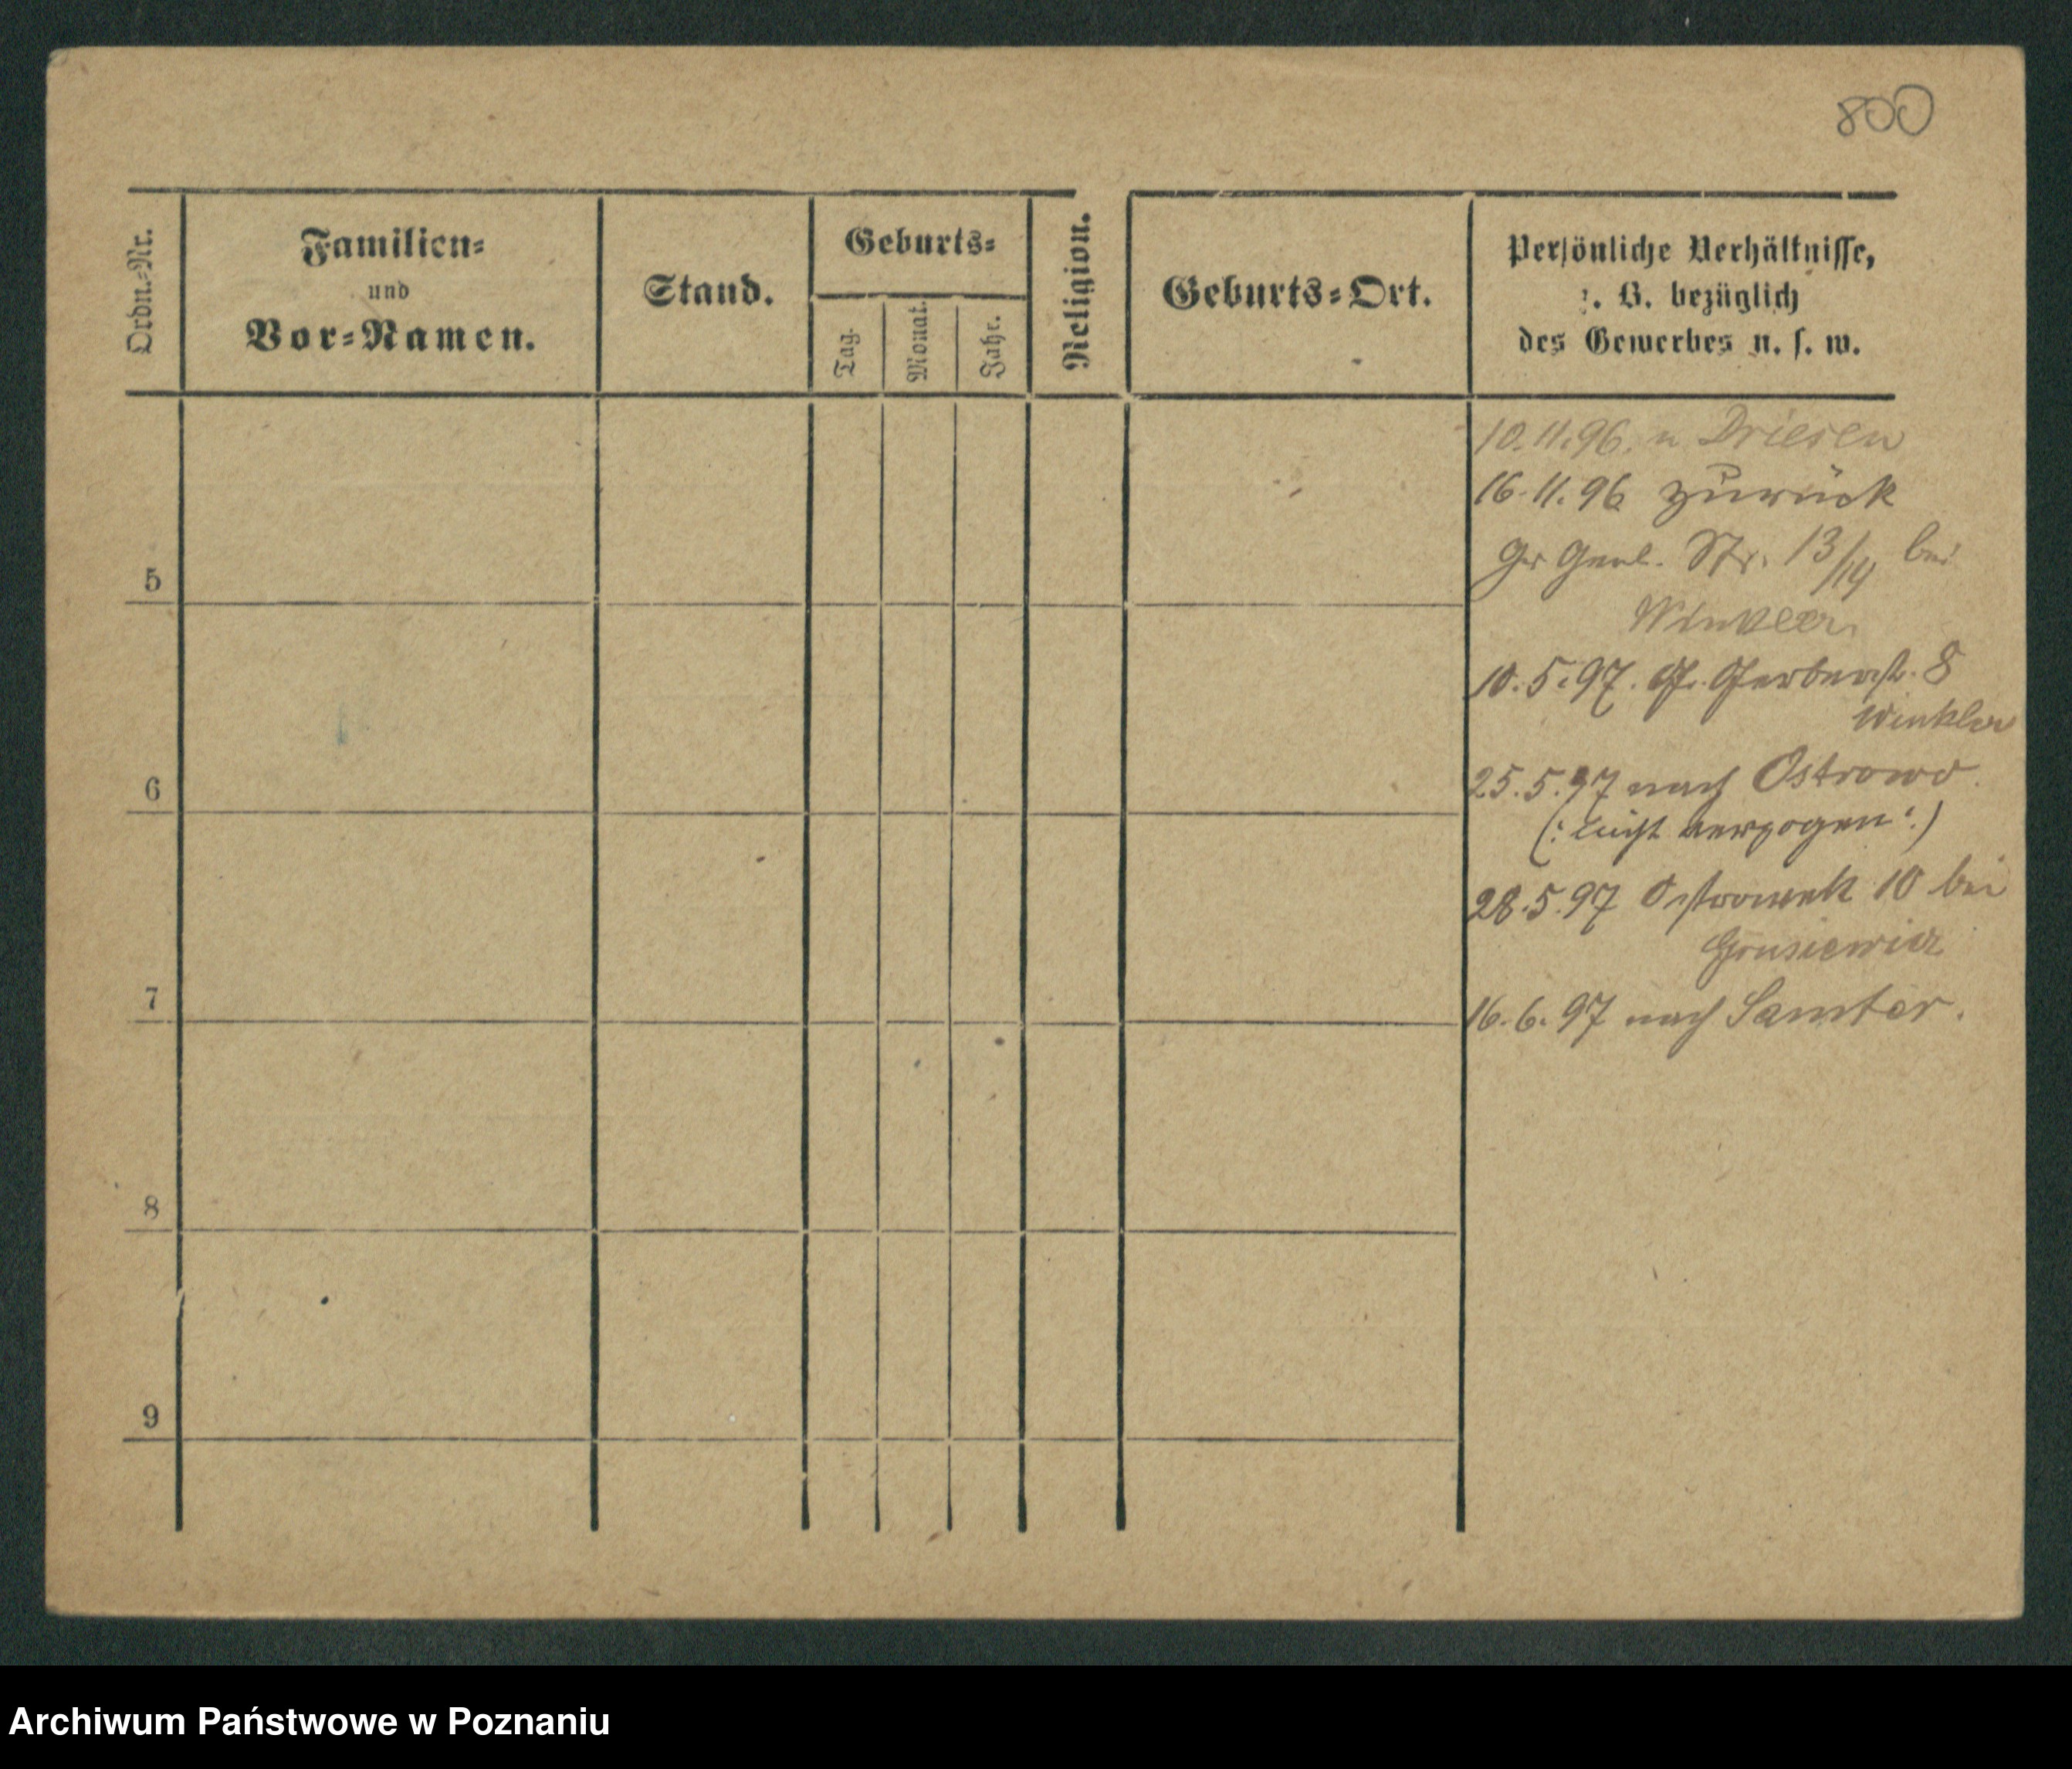 800
Ordn.-Nr.
Familien-
und
Vor-Namen.
Stand.
Geburts-
Tag.
Monat.
Jahr.
Religion.
Geburts-Ort.
Persönliche Verhältnisse,
z. B. bezüglich
des Gewerbes u. s. w.
10.11.96. n Driesen
16.11.96 zurück
Gr Gerb. Str. 13/14 bei
Winkler
5
10.5.97. Gr. Gerberstr. 8
Winkler
25.5.97 nach Ostrowo
6
(: verzogen :)
28.5.97 Ostrowek 10 bei
7
16.6.97 nach Samter.
8
9
Archiwum Państwowe w Poznaniu